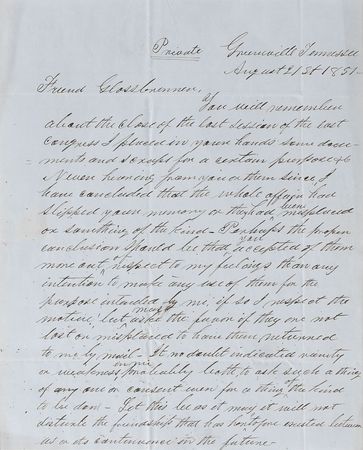 Private
Greeneville Tennessee
August 21st 1851
Friend Glossbrenner,
You will remember
about the close of the last session of the last
Congress I placed in your hands some docu-
ments and scraps for a certain purpose &c
Never hearing from you or them since, I
have concluded that the whole affair had
slipped your memory or they had been misplaced
or something of the kind - Perhaps the proper
conclusion would be that you accepted of them
more out of respect to my feelings than any
intention to make any use of them for the
purpose intended by me, if so I respect the
motive, but ask the favor if they are not
lost or misplaced to have them returned
to me by mail - It no doubt indicated vanity
or weakness in me, probably both, to ask such a thing
of any one or consent even for a thing of the kind
to be don - Let this be as it may it will not
disturb the friendship that has heretofore existed between
us or its continuance in the future -